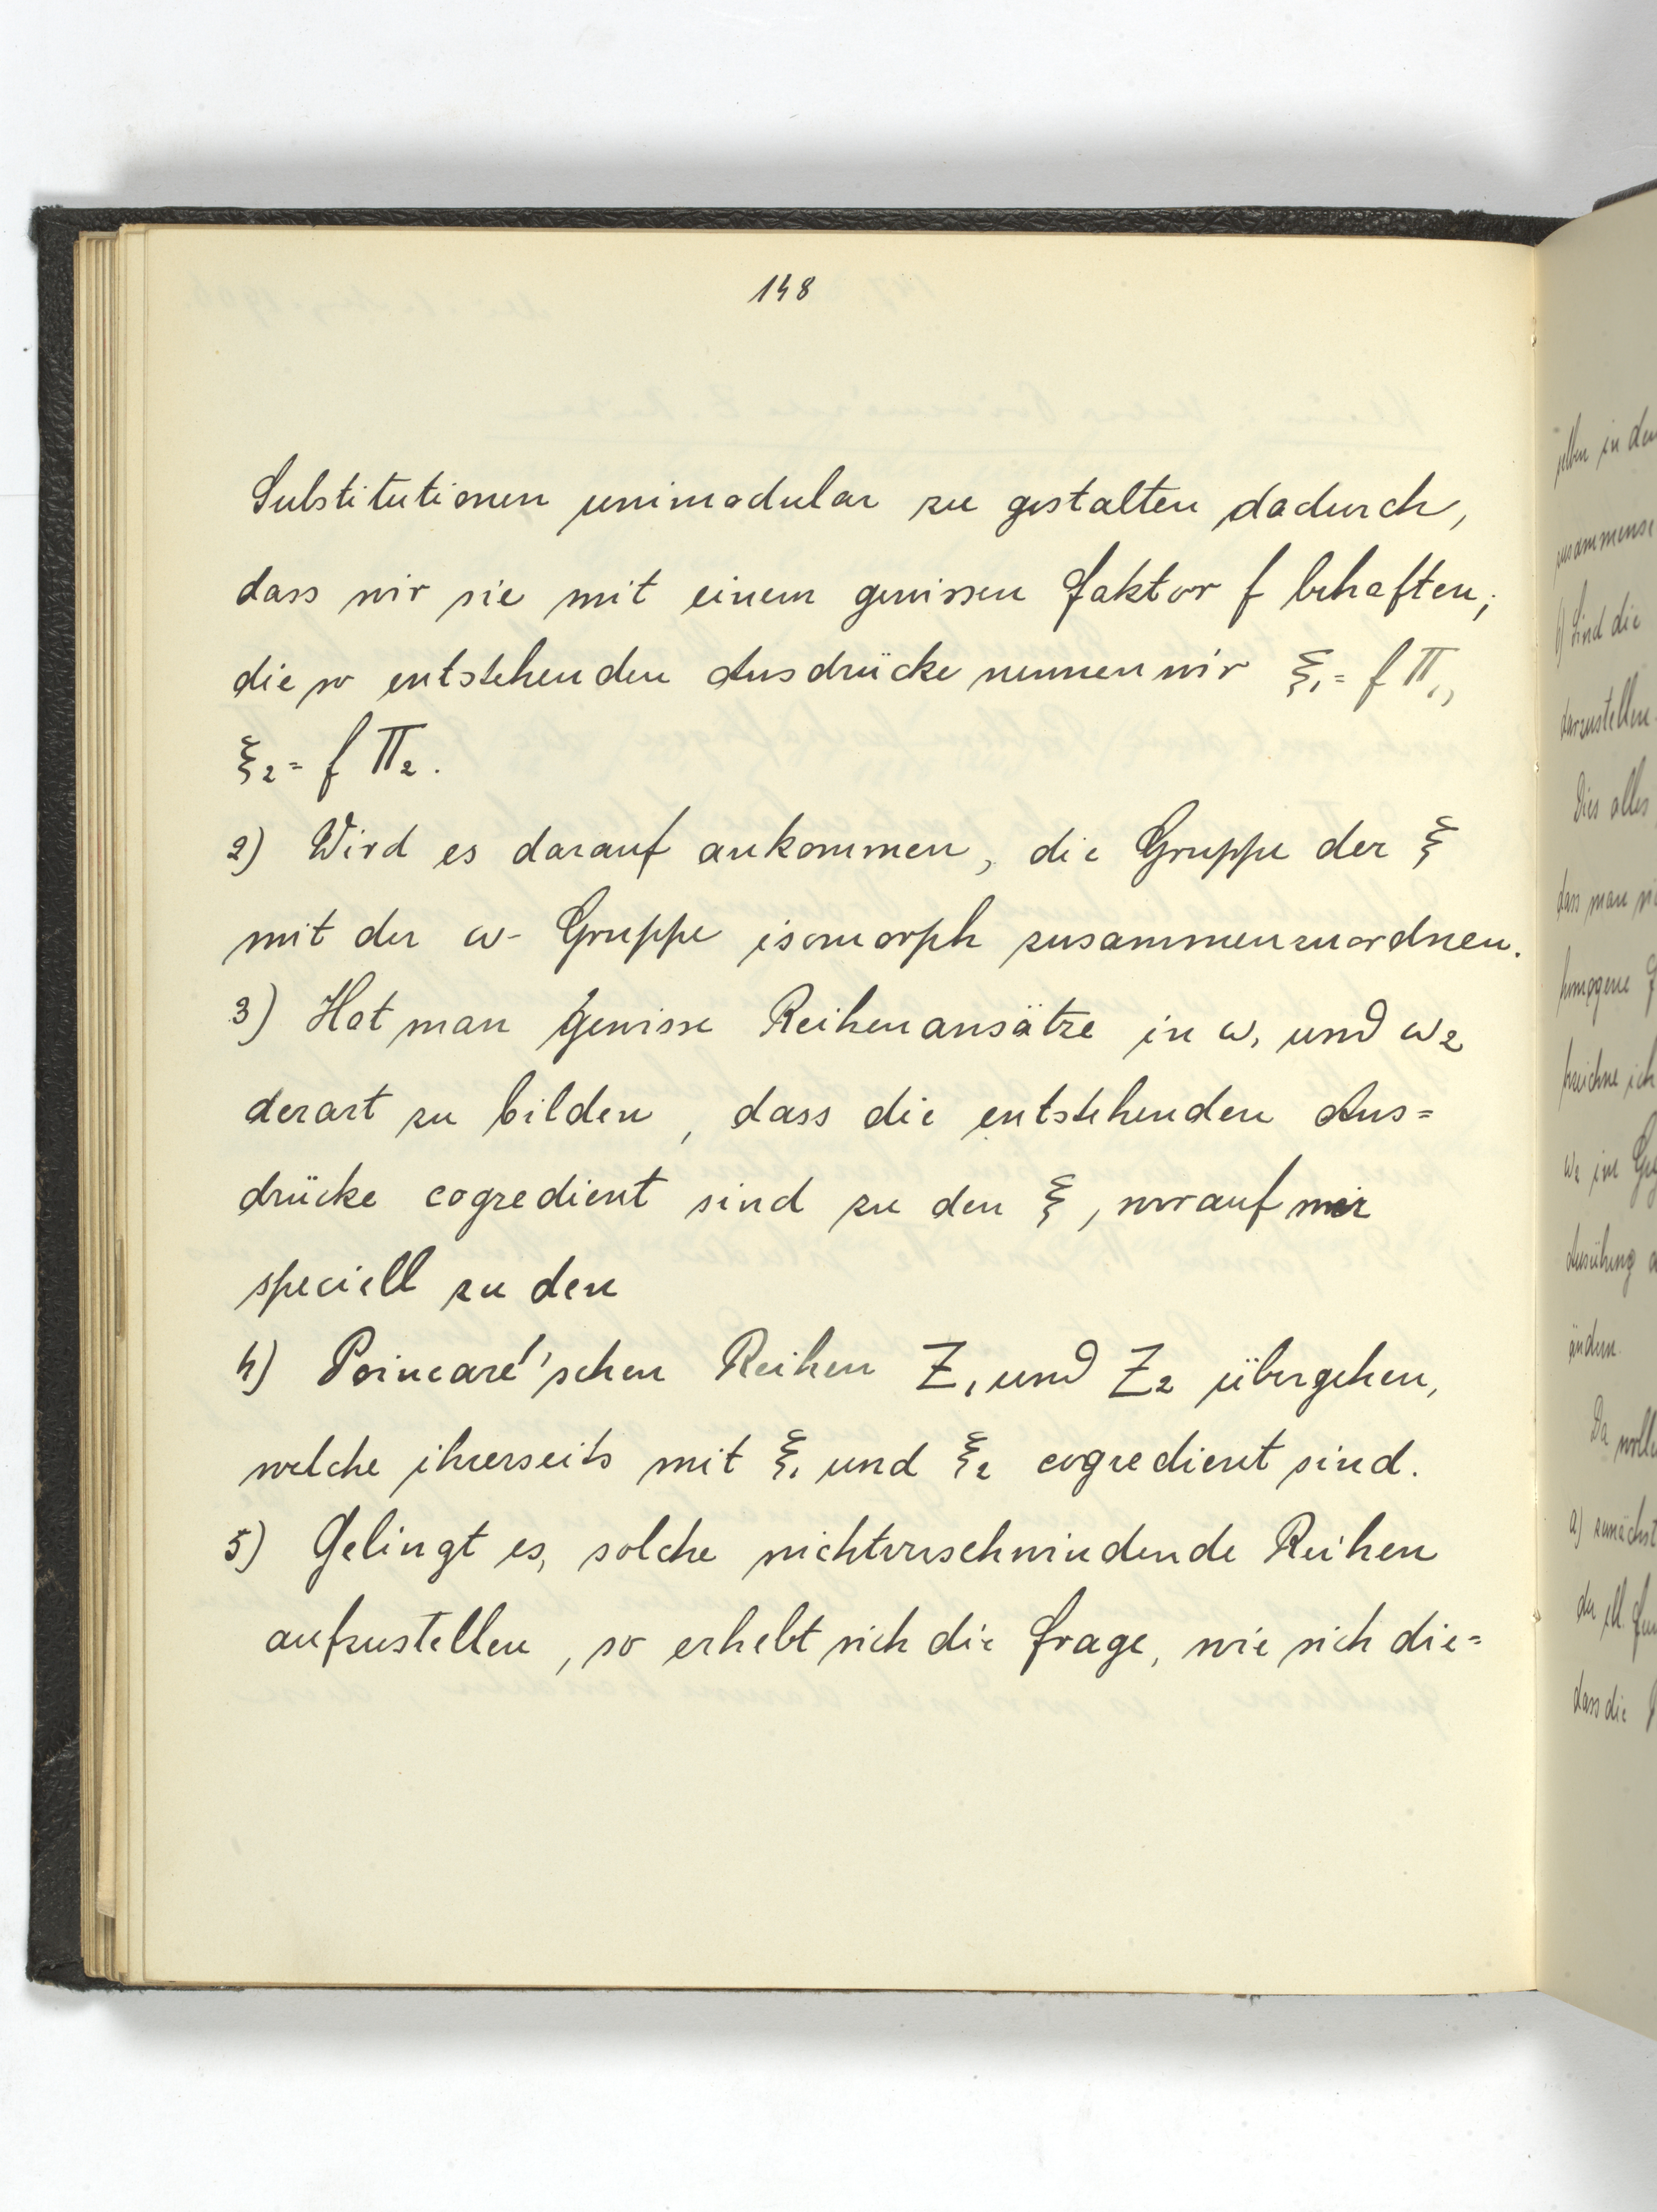 148
Substitutionen unimodular zu gestalten dadurch,
dass wir sie mit einem gewissen Faktor f behaften;
die so entstehenden Ausdrücke nennen wir ξ₁ = f Π₁,
ξ₂ = f Π₂.
2) Wird es darauf ankommen, die Gruppe der ξ
mit der ω- Gruppe isomorph zusammenzuordnen.
3) Hat man gewisse Reihenansätze in ω₁ und ω₂
derart zu bilden, dass die entstehenden Aus=
drücke cogredient sind zu den ξ, worauf wir
speciell zu den
4) Poincaré'schen Reihen Z₁ und Z₂ übergehen,
welche ihrerseits mit ξ₁ und ξ₂ cogredient sind.
5) Gelingt es, solche nichtverschwindende Reihen
aufzustellen, so erhebt sich die Frage, wie sich die=
selben in den
6) Sind die
darzustellen
Dies alles
dass man
homogene
bezeichne ich
ω₂ im
ändern.
Da
a) zunächst
dass die